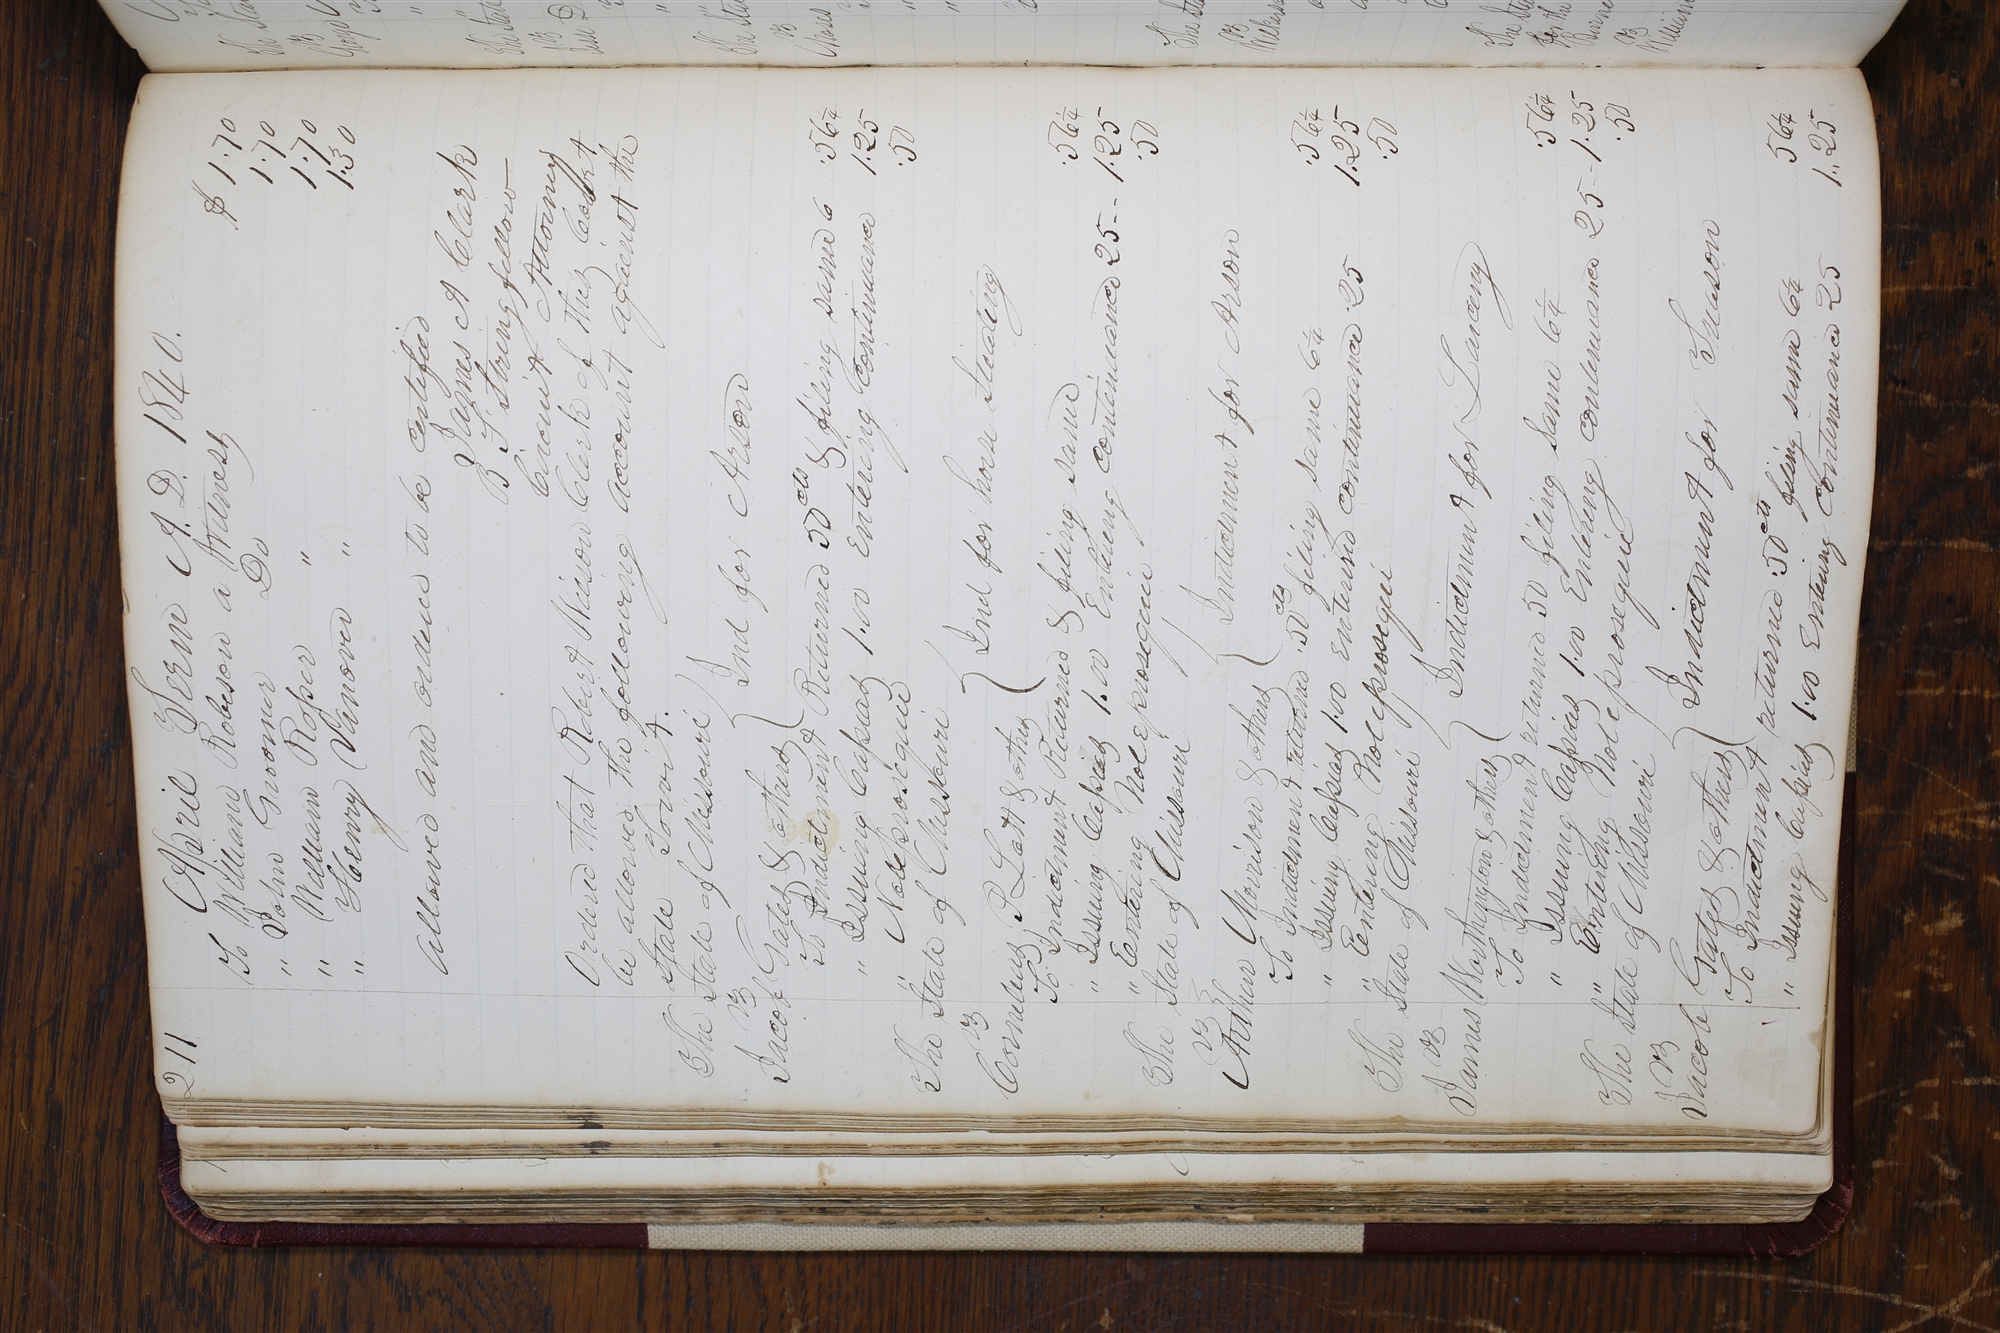 211 April Term A. D. 1840.
To William Robeson a Witness $ 1.70
" John Groomer Do 1.70
" William Roper " 1.70
" Henry Vanover " 1.30
Allowed and ordered to be certified
James A Clark
B F Stringfellow
Circuit Attorney
Ordered that Robert Wilson Clerk of this Court
be allowed the following account against the
State Towit.
The State of Missouri
vs Ind for Arson
Jacob Gates & others
To Indictment Returned 50 cts & filing same 6 .56¼
" Issuing Capias 1.00 Entering Continuance 1.25
" Nole prosequi .50
The State of Missouri
vs Ind for horse Stealing
Cornelius P Lott & others
To Indictment Returned & filing same .56¼
" Issuing Capias 1.00 Entering continuance 25-- 1.25
" Entering Nole prosequi .50
The State of Missouri
vs Indictment for Arson
Arthur Morrison & others
To Indictment returned .50 cts filing same 6¼ .56¼
" Issuing Capias 1.00 Entered continuance 25 1.25
" Entering Nole prosequi .50
The State of Missouri
vs Indictment for Larceny
James Worthington & others
To Indictment returned 50 filing same 6¼ .56¼
" Issuing Capias 1.00 Entering continuance 25-- 1.25
" Entering Nole prosequi .50
The State of Missouri
vs Indictment for Treason
Jacob Gates & others
To Indictment returned .50 cts filing same 6¼ 56¼
" Issuing Capias 1.00 Entering Continuance 25 1.25